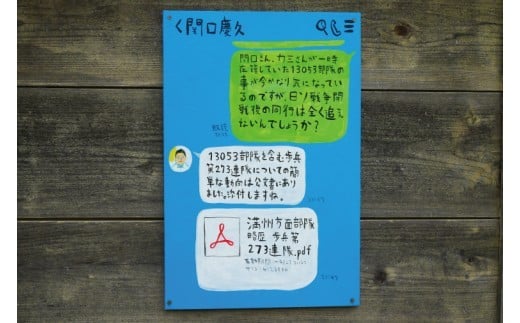 く関口慶久
関口さん、カミさんが一時
応召していた13053部隊の
事が今かなり気になっている
のですが、日ソ戦争開
戦後の同行は全く追え
ないんでしょうか?
既読
13053部隊を含む歩兵
第273連隊についての簡
単な動向は公文書にあり
ました。添付しますね。
満州方面部隊
略歴 歩兵第
273連隊.pdf